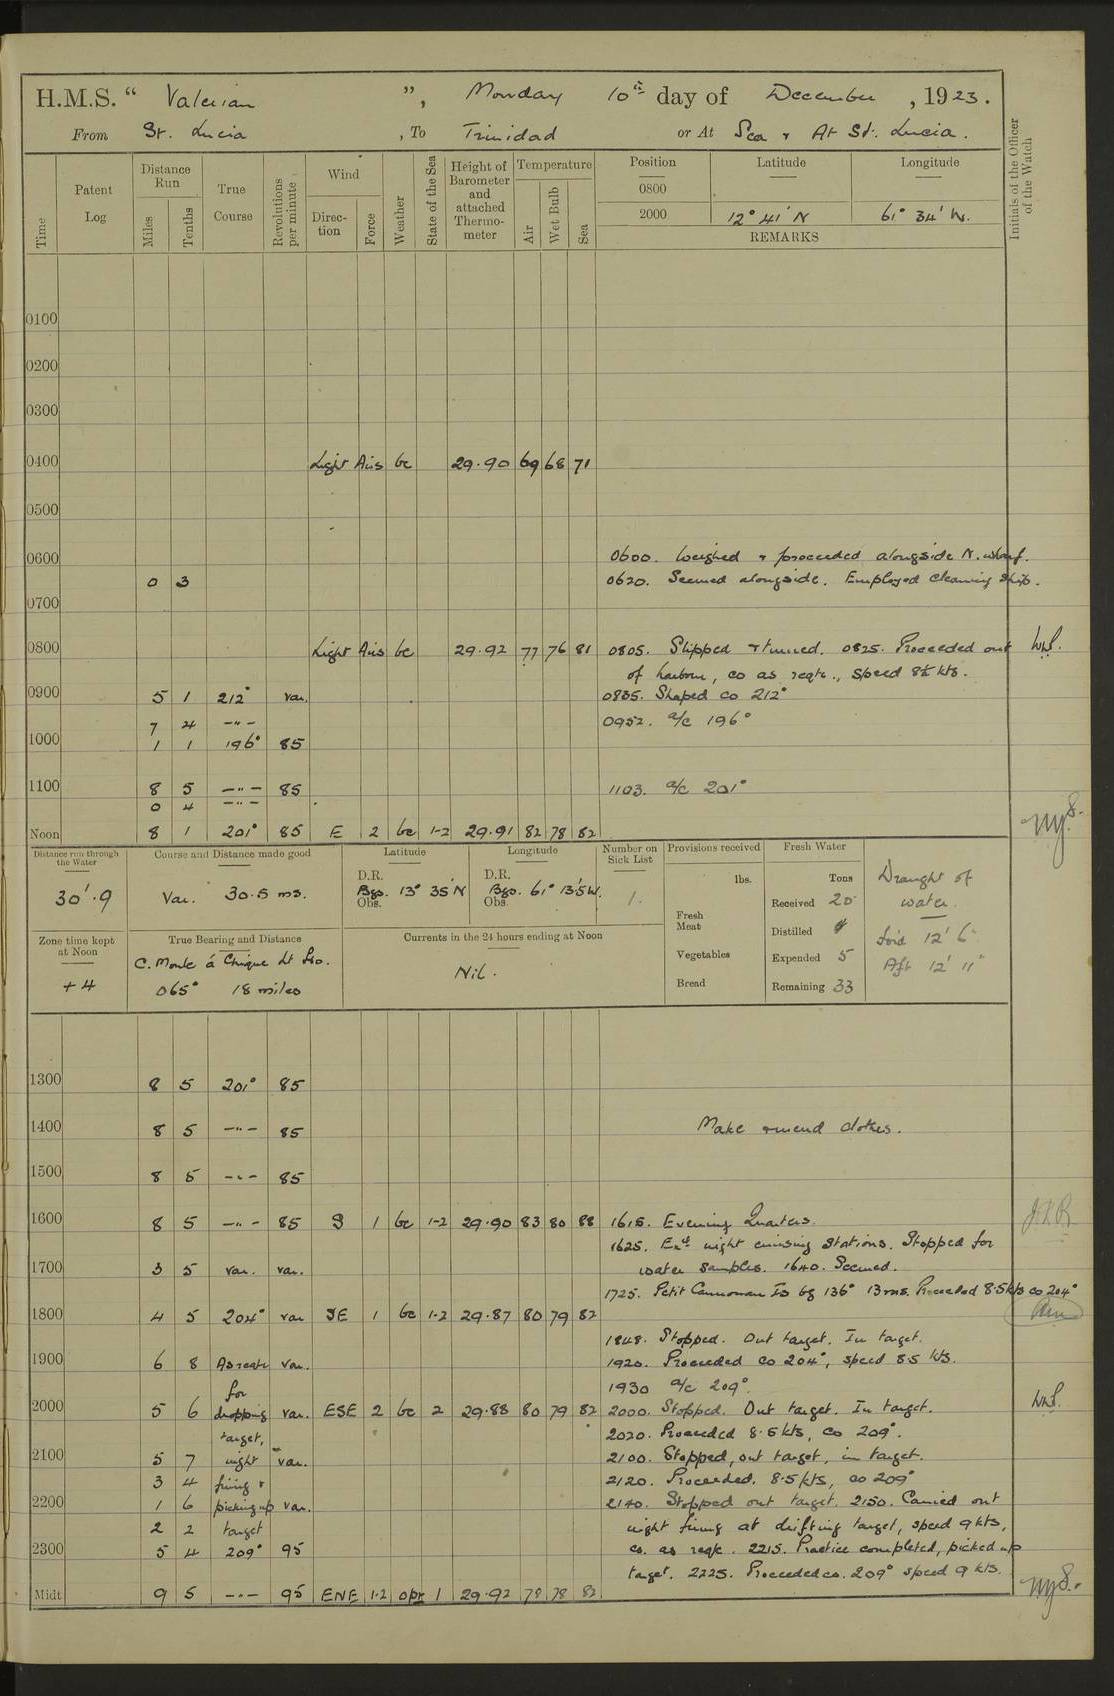 H.M.S. “ Valerian ”, Monday 10th day of December, 1923.
From St. Lucia, To Trinidad or At Sea & At St. Lucia.
Time
Patent Log
Distance Run
Miles
Tenths
True Course
Revolutions per minute
Wind
Direction
Force
Weather
State of the Sea
Height of Barometer and attached Thermometer
Temperature
Air
Wet Bulb
Sea
Position
0800
2000
Latitude
12° 41' N
Longitude
61° 34' W.
REMARKS
Initials of the Officer of the Watch
0100
0200
0300
0400 Light Airs bc 29.90 69 68 71
0500
0600 0600. Weighed & proceeded alongside N. wharf.
0 3 0620. Secured alongside. Employed cleaning ship.
0700
0800 Light Airs bc 29.92 77 76 81 0805. Slipped & turned. 0825. Proceeded out
of harbour, co as reqte., speed 8½ kts.
0900 5 1 212° var. 0835. Shaped co 212°
7 4 -"- 0952. a/c 196°
1000 1 1 196° 85
1100 8 5 -"- 85 1103. a/c 201°
0 4 -"-
Noon 8 1 201° 85 E 2 bc 1-2 29.91 82 78 82
Distance run through the Water
30'.9
Course and Distance made good
Var. 30.5 ms.
Latitude
D.R.
Bgs. 13° 35' N
Obs.
Longitude
D.R.
Bgs. 61° 13'.5 W.
Obs.
Number on Sick List
1.
Provisions received
lbs.
Fresh Meat
Vegetables
Bread
Fresh Water
Tons
Received 20
Distilled
Expended 5
Remaining 33
Draught of
water.
For'd 12' 6"
Aft 12' 11"
Zone time kept at Noon
+4
True Bearing and Distance
065° 18 miles
Currents in the 24 hours ending at Noon
Nil.
1300 8 5 201° 85
1400 8 5 -"- 85 Make & mend clothes.
1500 8 5 -"- 85
1600 8 5 -"- 85 S 1 bc 1-2 29.90 83 80 88 1615. Evening Quarters.
1625. Exd. night cruising stations. Stopped for
1700 3 5 var. var. water samples. 1640. Secured.
1725. Petit Cannouan Is bg 136° 13 ms. Proceeded 8.5 kts co 204°
1800 4 5 204° var SE 1 bc 1-2 29.87 80 79 82
1848. Stopped. Out target. In target.
1900 6 8 As reqte var. 1920. Proceeded co 204°, speed 8.5 kts.
for 1930 a/c 209°.
2000 5 6 dropping var. ESE 2 bc 2 29.88 80 79 82 2000. Stopped. Out target. In target.
target, 2020. Proceeded 8.5 kts, co 209°.
2100 5 7 night var. 2100. Stopped, out target, in target.
3 4 firing & 2120. Proceeded. 8.5 kts, co 209°
2200 1 6 picking up var. 2140. Stopped out target. 2150. Carried out
2 2 target night firing at drifting target, speed 9 kts,
2300 5 4 209° 95 co. as reqte. 2215. Practice completed, picked up
target. 2225. Proceeded co. 209° speed 9 kts.
Midt 9 5 -"- 95 ENE 1-2 opr 1 29.92 78 78 82